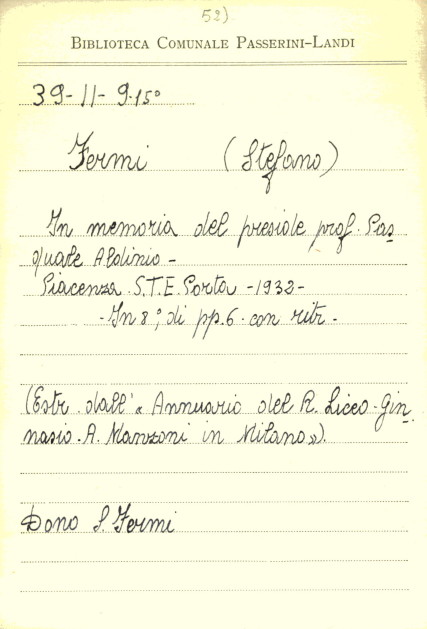 52)
BIBLIOTECA COMUNALE PASSERINI-LANDI
39-11-9.15°
Fermi (Stefano)
In memoria del preside prof. Pas=
quale Aldinio -
Piacenza. S.T.E. Porta - 1932-
- In 8°, di pp. 6. con ritr. -
(Estr. dall'« Annuario del R. Liceo-Gin=
nasio. A. Manzoni in Milano»).
Dono S. Fermi